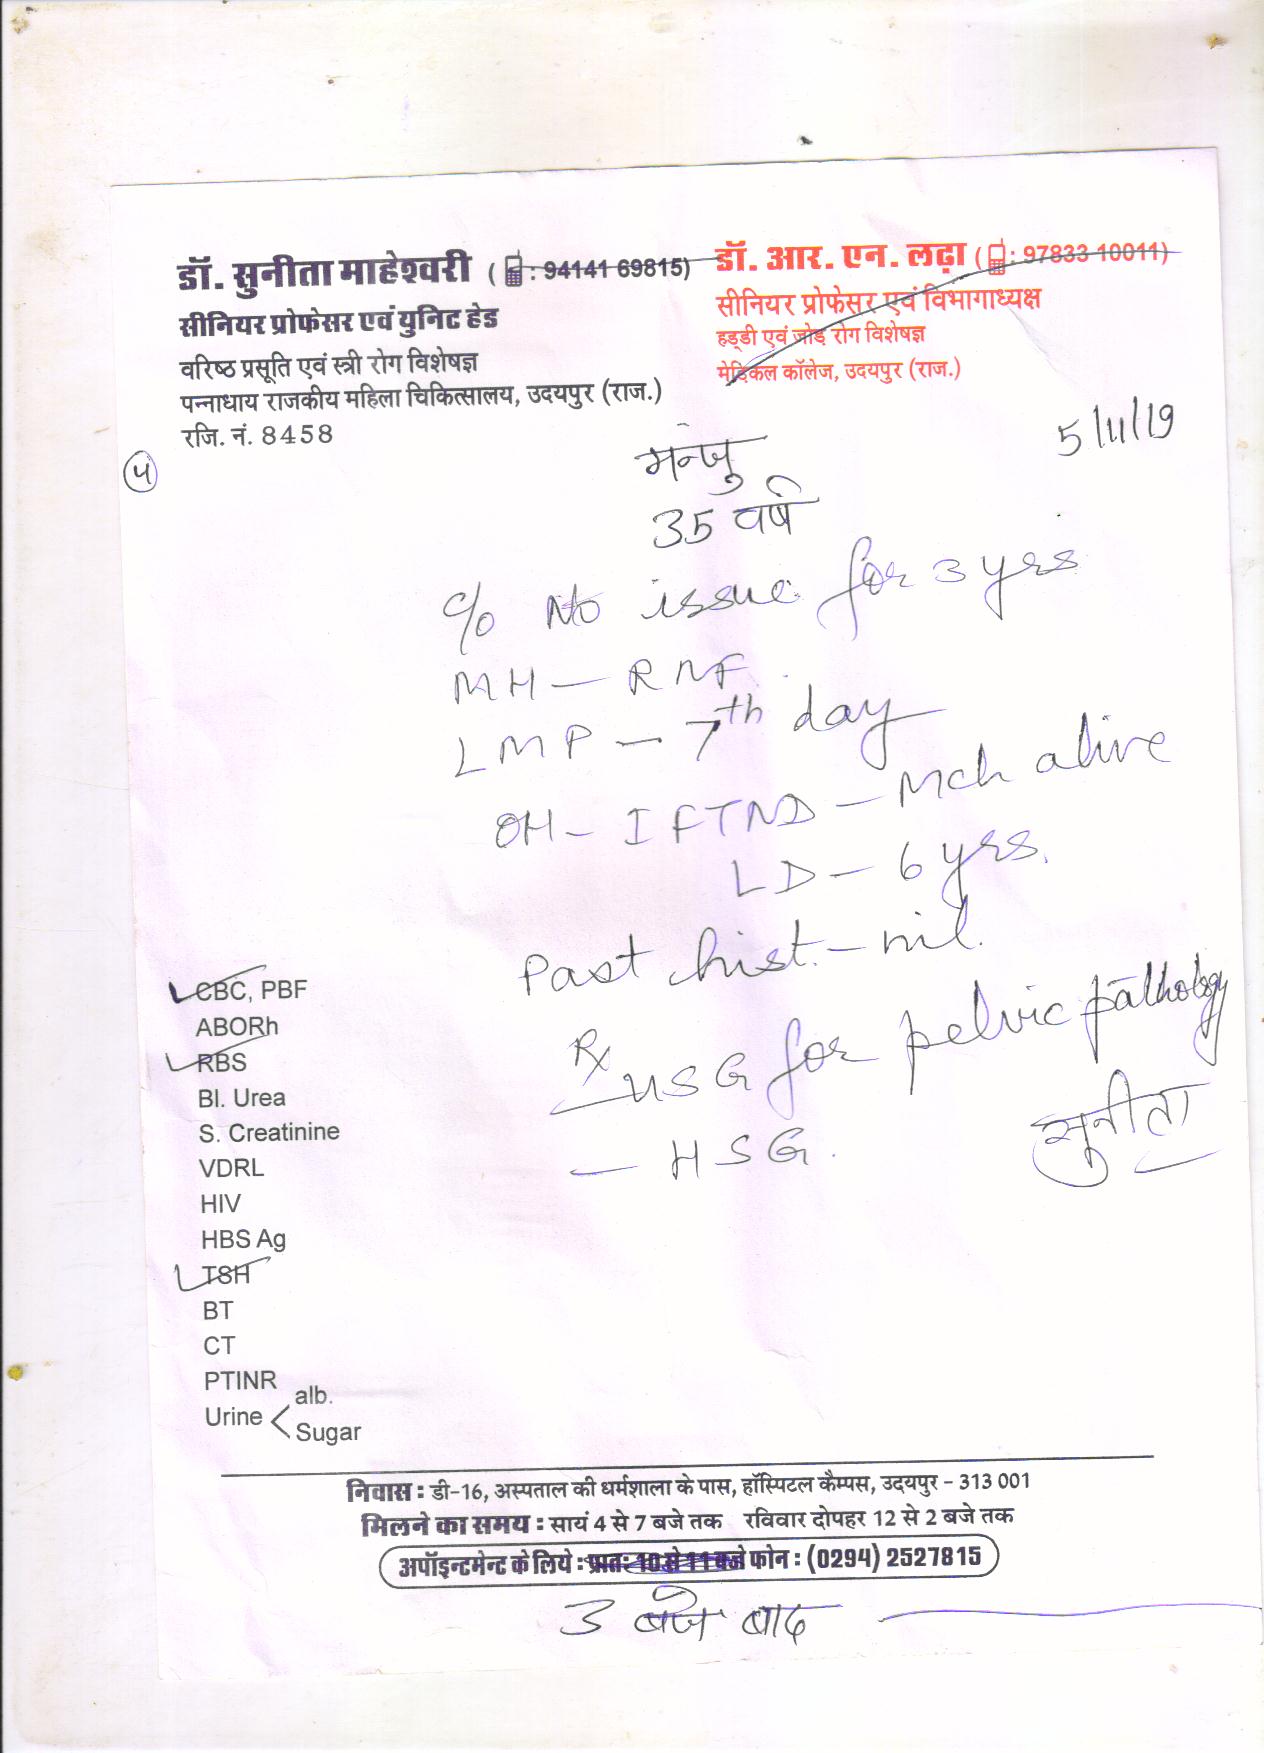 डॉ. सुनीता माहेश्वरी ( : 94141 69815)
सीनियर प्रोफेसर एवं युनिट हेड
वरिष्ठ प्रसूति एवं स्त्री रोग विशेषज्ञ
पन्नाधाय राजकीय महिला चिकित्सालय, उदयपुर (राज.)
रजि. नं. 8458
डॉ. आर. एन. लढ़ा ( : 97833 10011)
सीनियर प्रोफेसर एवं विभागाध्यक्ष
हड्डी एवं जोड़ रोग विशेषज्ञ
मेडिकल कॉलेज, उदयपुर (राज.)
5/11/19
4
मन्जु
35 वर्ष
c/o No issue for 3 yrs
MH – RNF
LMP – 7th day
OH – I FTND – Mch alive
LD – 6 yrs.
Past hist. – nil.
Rx
USG for pelvic pathology
– HSG.
सुनीता
CBC, PBF
ABORh
RBS
Bl. Urea
S. Creatinine
VDRL
HIV
HBS Ag
TSH
BT
CT
PTINR
Urine < alb.
Sugar
निवास : डी-16, अस्पताल की धर्मशाला के पास, हॉस्पिटल कैम्पस, उदयपुर - 313 001
मिलने का समय : सायं 4 से 7 बजे तक रविवार दोपहर 12 से 2 बजे तक
अपॉइन्टमेन्ट के लिये : प्रातः 10 से 11 बजे फोन : (0294) 2527815
3 बजे बाद